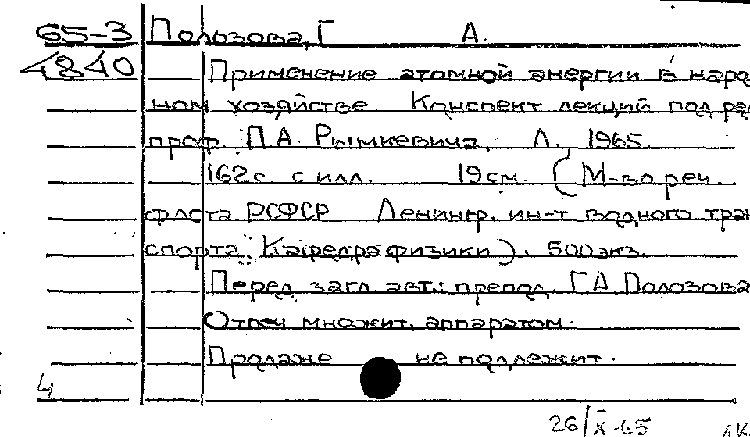 65-3 Полозова, Г А.
4840
Применение атомной энергии в народ
ном хозяйстве Конспект лекций под ред
проф. П.А. Рымкевича, Л., 1965.
162с. с илл. 19см. (М-во реч.
флота РСФСР Ленингр. ин-т водного тран
спорта. Кафедра физики). 500экз.
Перед загл. авт.: препод. Г.А Полозова
Отпеч множит. аппаратом.
Продаже не подлежит.
4
26/X-65